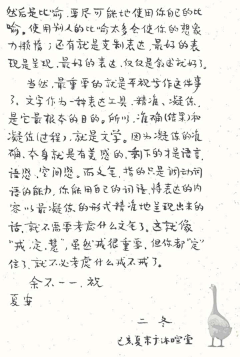 然后是比喻，要尽可能地使用你自己的比
喻。使用别人的比喻太多会使你的想象
力懒惰；还有就是克制表达，最好的表
现是呈现，最好的表达，仅仅是叙述就好了。
当然，最重要的就是平视写作这件事
了，文字作为一种表达工具，精准、凝练，
是它最根本的目的。所以，准确(结果)和
凝练(过程)，就是文学。因为凝练的准
确，本身就是有美感的，剩下的才是语言、
语感、空间感。而文笔，指的只是调动词
语的能力，你能用自己的词语，将表达的内
容以最凝练的形式精准地呈现出来的
话，就不需要考虑什么文笔了。这就像
“戒、定、慧”，虽然戒很重要，但你都“定”
住了，就不必考虑什么戒不戒了。
余不一一，放
夏安
二冬
己亥夏末于沐